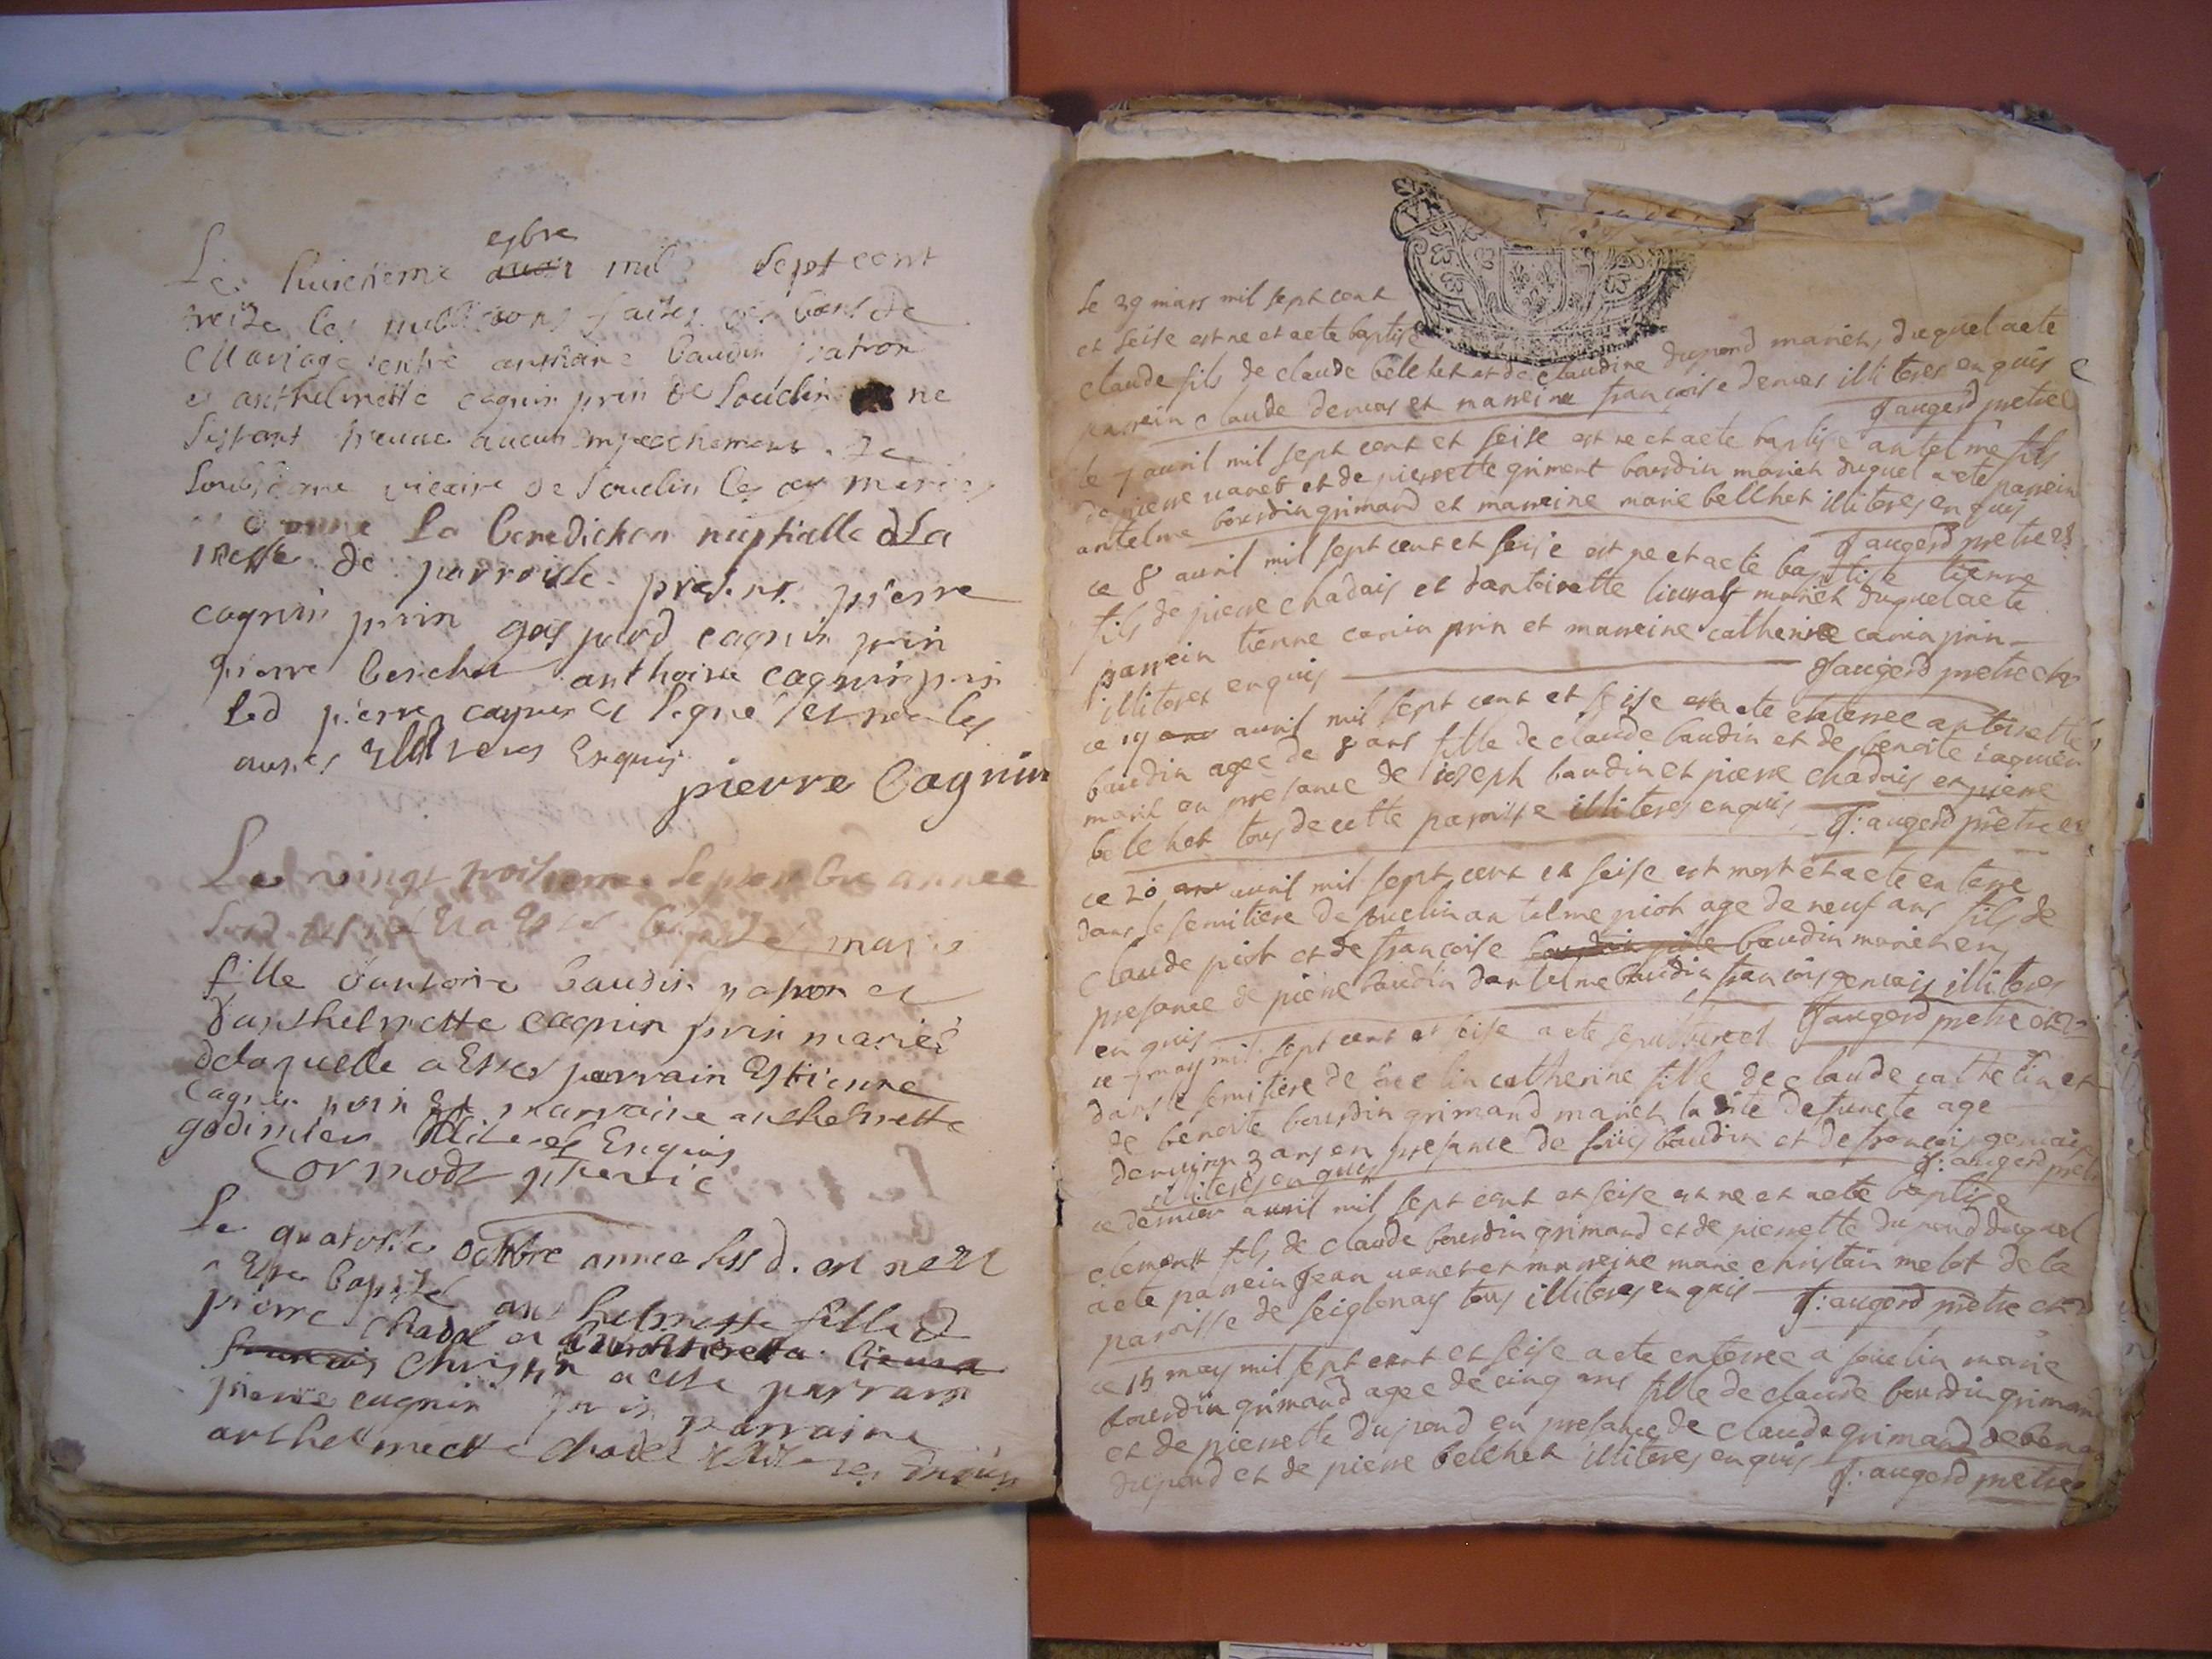 esbre
Le huictieme mil sept cent
treize les publicaons faites des bans de
Mariage entre anthoine baudin patron
et anthelmette cagnin prin de Souclin ne
sestant treuve aucun empeschement Je
soubsigne vicaire de Souclin les ay mariés
et donne la benediction nuptialle a La
messe de parroisse present pierre
cagnin prin gaspard cagnin prin
pierre berchet anthoine cagnin prin
led pierre cagnin a signe et non les
autres Illiteres Enquis
pierre Cagnin
Le vingt troisieme septembre annee
susd est né et a Este baptisé marie
fille dantoine baudin patron et
danthelmette cagnin prin mariés
de laquelle a Esté parrain Estienne
Cagnin prin et marraine anthelmette
godimier Illiteres Enquis
Cormodz ptre vic
Le quatorse octobre annee susd. est nee et
a Este baptisé anthelmette fille d
pierre chadel et
christin a este parrain
pierre cugnin prin marraine
anthelmette chadel Illiteres enquis
le 29 mars mil sept cent
et seise est ne et aete baptise
claude fils de claude belchet et de claudine dupond mariets duquel aete
parrein claude dervas et marreine francoise dervas illiteres enquis
J augerd pretre
le 7 avril mil sept cent et seise est ne et aete baptise antelme fils
de pierre vanet et de pierrette griment bourdin mariets duquel aete parrein
antelme bourdin grimard et marreine marie bellhet illiteres enquis
J augerd pretre et
ce 8 avril mil sept cent et seise est ne et aete baptise tienne
fils de pierre chadais et dantoinette lieurat mariets duquel aete
parrein tienne canin prin et marreine catherine canin prin
illiteres enquis J augerd pretre
ce 19 avril mil sept cent et seise aete enterree antoinette
baudin agee de 8 ans fille de claude baudin et de benoite caquien
mariets en presance de joseph baudin et pierre chadais et pierre
belchet tous de cette paroisse illiteres enquis J: augerd pretre et
ce 20 avril mil sept cent et seise est mort et aete enterre
dans le semitiere de souclin antelme piot age de neuf ans fils de
claude piot et de francoise baudin mariets en
presance de pierre baudin dantelme baudin francois gervais illiteres
enquis J augerd pretre
ce 7 may mil sept cent et seise a ete sepulturee
dans le semitiere de souclin catherine fille de claude cathelin et
de benoite bourdin grimand mariets la dite defuncte age
de 3 ans en presance de baudin et de francois gervais
illiteres enquis J: augerd pretre
ce dernier avril mil sept cent et seise est ne et aete baptise
clement fils de claude bourdin grimand et de pierrette dupond duquel
aete parrein Jean vanet et marreine marie christain melot de la
paroisse de seiglenay tous illiteres enquis J: augerd pretre
ce 15 may mil sept cent et seise aete enterree a souclin marie
bourdin grimand agee de cinq ans fille de claude bourdin grimand
et de pierrette dupond en presance de claude grimand de
dupond et de pierre belchet illiteres enquis J: augerd pretre